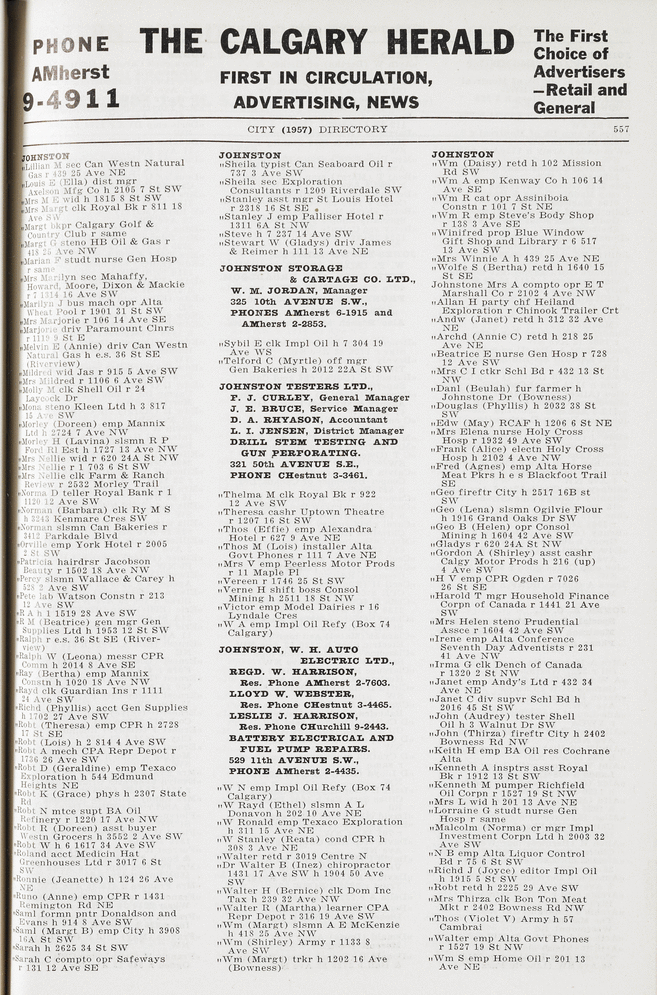 PHONE
AMherst
9-4911
THE CALGARY HERALD
FIRST IN CIRCULATION,
ADVERTISING, NEWS
The First
Choice of
Advertisers
—Retail and
General
CITY (1957) DIRECTORY
557
JOHNSTON
„Lillian M sec Can Westn Natural
Gas r 439 25 Ave NE
„Louis E (Ella) dist mgr
Axelson Mfg Co h 2105 7 St SW
„Mrs M E wid h 1815 8 St SW
„Mrs Margt clk Royal Bk r 811 18
Ave SW
„Margt bkpr Calgary Golf &
Country Club r same
„Margt G steno HB Oil & Gas r
418 25 Ave NW
„Marian F studt nurse Gen Hosp
r same
„Mrs Marilyn sec Mahaffy,
Howard, Moore, Dixon & Mackie
r 7 1314 16 Ave SW
„Marilyn J bus mach opr Alta
Wheat Pool r 1901 31 St SW
„Mrs Marjorie r 106 14 Ave SE
„Marjorie driv Paramount Clnrs
r 1119 9 St E
„Melvin E (Annie) driv Can Westn
Natural Gas h e.s. 36 St SE
(Riverview)
„Mildred wid Jas r 915 5 Ave SW
„Mrs Mildred r 1106 6 Ave SW
„Molly M clk Shell Oil r 24
Laycock Dr
„Mona steno Kleen Ltd h 3 817
15 Ave SW
„Morley (Doreen) emp Mannix
Ltd h 2724 7 Ave NW
„Morley H (Lavina) slsmn R P
Ford Rl Est h 1727 13 Ave NW
„Mrs Nellie wid r 620 24A St NW
„Mrs Nellie r 1 703 6 St SW
„Mrs Nellie clk Farm & Ranch
Review r 2532 Morley Trail
„Norma D teller Royal Bank r 1
1120 12 Ave SW
„Norman (Barbara) clk Ry M S
h 3243 Kenmare Cres SW
„Norman slsmn Can Bakeries r
3412 Parkdale Blvd
„Orville emp York Hotel r 2005
2 St SW
„Patricia hairdrsr Jacobson
Beauty r 1502 18 Ave NW
„Percy slsmn Wallace & Carey h
528 2 Ave SW
„Pete lab Watson Constn r 213
12 Ave SW
„R A h 1 1519 28 Ave SW
„R M (Beatrice) gen mgr Gen
Supplies Ltd h 1953 12 St SW
„Ralph r e.s. 36 St SE (River-
view)
„Ralph W (Leona) messr CPR
Comm h 2014 8 Ave SE
„Ray (Bertha) emp Mannix
Constn h 1020 18 Ave NW
„Rayd clk Guardian Ins r 1111
24 Ave SW
„Richd (Phyllis) acct Gen Supplies
h 1702 27 Ave SW
„Robt (Theresa) emp CPR h 2728
17 St SE
„Robt (Lois) h 2 814 4 Ave SW
„Robt A mech CPA Repr Depot r
1736 26 Ave SW
„Robt D (Geraldine) emp Texaco
Exploration h 544 Edmund
Heights NE
„Robt K (Grace) phys h 2307 State
Rd
„Robt N mtce supt BA Oil
Refinery r 1220 17 Ave NW
„Robt R (Doreen) asst buyer
Westn Grocers h 3552 2 Ave SW
„Robt W h 6 1617 34 Ave SW
„Roland acct Medicin Hat
Greenhouses Ltd r 3017 6 St
SW
„Ronnie (Jeanette) h 124 26 Ave
NE
„Runo (Anne) emp CPR r 1431
Remington Rd NE
„Saml formn pntr Donaldson and
Evans h 914 8 Ave SW
„Saml (Margt B) emp City h 3908
16A St SW
„Sarah h 2625 34 St SW
„Sarah C compto opr Safeways
r 131 12 Ave SE
JOHNSTON
„Sheila typist Can Seaboard Oil r
737 3 Ave SW
„Sheila sec Exploration
Consultants r 1209 Riverdale SW
„Stanley asst mgr St Louis Hotel
r 2318 16 St SE
„Stanley J emp Palliser Hotel r
1311 6A St NW
„Steve h 7 237 14 Ave SW
„Stewart W (Gladys) driv James
& Reimer h 111 13 Ave NE
JOHNSTON STORAGE
& CARTAGE CO. LTD.,
W. M. JORDAN, Manager
325 10th AVENUE S.W.,
PHONES AMherst 6-1915 and
AMherst 2-2853.
„Sybil E clk Impl Oil h 7 304 19
Ave WS
„Telford C (Myrtle) off mgr
Gen Bakeries h 2012 22A St SW
JOHNSTON TESTERS LTD.,
F. J. CURLEY, General Manager
J. E. BRUCE, Service Manager
D. A. RHYASON, Accountant
L. I. JENSEN, District Manager
DRILL STEM TESTING AND
GUN PERFORATING.
321 50th AVENUE S.E.,
PHONE CHestnut 3-3461.
„Thelma M clk Royal Bk r 922
12 Ave SW
„Theresa cashr Uptown Theatre
r 1207 16 St SW
„Thos (Effie) emp Alexandra
Hotel r 627 9 Ave NW
„Thos M (Lois) installer Alta
Govt Phones r 111 7 Ave NE
„Mrs V emp Peerless Motor Prods
r 11 Maple Pl
„Vereen r 1746 25 St SW
„Verne H shift boss Consol
Mining h 2511 18 St NW
„Victor emp Model Dairies r 16
Lyndale Cres
„W A emp Impl Oil Refy (Box 74
Calgary)
JOHNSTON, W. H. AUTO
ELECTRIC LTD.,
REGD. W. HARRISON,
Res. Phone AMherst 2-7603.
LLOYD W. WEBSTER,
Res. Phone CHestnut 3-4465.
LESLIE J. HARRISON,
Res. Phone CHurchill 9-2443.
BATTERY ELECTRICAL AND
FUEL PUMP REPAIRS.
529 11th AVENUE S.W.,
PHONE AMherst 2-4435.
„W N emp Impl Oil Refy (Box 74
Calgary)
„W Rayd (Ethel) slsmn A L
Donavon h 202 10 Ave NE
„W Ronald emp Texaco Exploration
h 311 15 Ave NE
„W Stanley (Reata) cond CPR h
308 3 Ave NE
„Walter retd r 3019 Centre N
„Dr Walter B (Inez) chiropractor
1431 17 Ave SW h 1904 50 Ave
SW
„Walter H (Bernice) clk Dom Inc
Tax h 239 32 Ave NW
„Walter R (Martha) learner CPA
Repr Depot r 316 19 Ave SW
„Wm (Margt) slsmn A E McKenzie
h 418 25 Ave NW
„Wm (Shirley) Army r 1133 8
Ave SW
„Wm (Margt) trkr h 1202 16 Ave
(Bowness)
JOHNSTON
„Wm (Daisy) retd h 102 Mission
Rd SW
„Wm A emp Kenway Co h 106 14
Ave SE
„Wm R cat opr Assiniboia
Constn r 101 7 St NE
„Wm R emp Steve's Body Shop
r 138 3 Ave SE
„Winifred prop Blue Window
Gift Shop and Library r 6 517
13 Ave SW
„Mrs Winnie A h 439 25 Ave NE
„Wolfe S (Bertha) retd h 1640 15
St SE
Johnstone Mrs A compto opr E T
Marshall Co r 2102 4 Ave NW
„Allan H party chf Heiland
Exploration r Chinook Trailer Crt
„Andw (Janet) retd h 312 32 Ave
NE
„Archd (Annie C) retd h 218 25
Ave NW
„Beatrice E nurse Gen Hosp r 728
12 Ave SW
„Mrs C I ctkr Schl Bd r 432 13 St
NW
„Danl (Beulah) fur farmer h
Johnstone Dr (Bowness)
„Douglas (Phyllis) h 2032 38 St
SW
„Edw (May) RCAF h 1206 6 St NE
„Mrs Elena nurse Holy Cross
Hosp r 1932 49 Ave SW
„Frank (Alice) electn Holy Cross
Hosp h 2102 4 Ave NW
„Fred (Agnes) emp Alta Horse
Meat Pkrs h e s Blackfoot Trail
SE
„Geo fireftr City h 2517 16B st
SW
„Geo (Lena) slsmn Ogilvie Flour
h 1916 Grand Oaks Dr SW
„Geo B (Helen) opr Consol
Mining h 1604 42 Ave SW
„Gladys r 620 24A St NW
„Gordon A (Shirley) asst cashr
Calgy Motor Prods h 216 (up)
4 Ave SW
„H V emp CPR Ogden r 7026
26 St SE
„Harold T mgr Household Finance
Corpn of Canada r 1441 21 Ave
SW
„Mrs Helen steno Prudential
Assce r 1604 42 Ave SW
„Irene emp Alta Conference
Seventh Day Adventists r 231
41 Ave NW
„Irma G clk Dench of Canada
r 1320 2 St NW
„Janet emp Andy's Ltd r 432 34
Ave NE
„Janet C div supvr Schl Bd h
2016 45 St SW
„John (Audrey) tester Shell
Oil h 3 Walnut Dr SW
„John (Thirza) fireftr City h 2402
Bowness Rd NW
„Keith H emp BA Oil res Cochrane
Alta
„Kenneth A insptrs asst Royal
Bk r 1912 13 St SW
„Kenneth M pumper Richfield
Oil Corpn r 1527 19 St NW
„Mrs L wid h 201 13 Ave NE
„Lorraine G studt nurse Gen
Hosp r same
„Malcolm (Norma) cr mgr Impl
Investment Corpn Ltd h 2003 32
Ave SW
„N B emp Alta Liquor Control
Bd r 75 6 St SW
„Richd J (Joyce) editor Impl Oil
h 1915 5 St SW
„Robt retd h 2225 29 Ave SW
„Mrs Thirza clk Bon Ton Meat
Mkt r 2402 Bowness Rd NW
„Thos (Violet V) Army h 57
Cambrai
„Walter emp Alta Govt Phones
r 1527 19 St NW
„Wm S emp Home Oil r 201 13
Ave NE